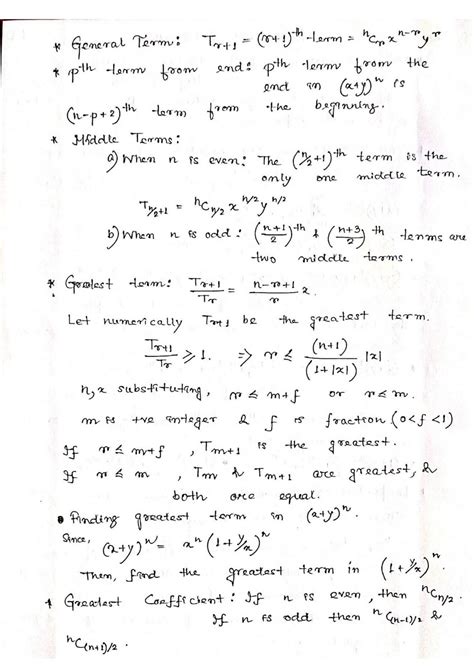 * General Term: T_{r+1} = (r+1)^{-th} term = ^nC_r x^{n-r} y^r
* p^{th} term from end: p^{th} term from the
end in (x+y)^n is
(n-p+2)^{-th} term from the beginning.
* Middle Terms:
a) When n is even: The (n/2+1)^{th} term is the
only one middle term.
T_{n/2+1} = ^nC_{n/2} x^{n/2} y^{n/2}
b) When n is odd: ((n+1)/2)^{-th} & ((n+3)/2)^{th} terms are
two middle terms.
* Greatest term: T_{r+1}/T_r = (n-r+1)/r x.
Let numerically T_{r+1} be the greatest term.
T_{r+1}/T_r ⩾ 1. ⇒ r ≤ (n+1)/(1+|x|) |x|
n, x substituting, r ≤ m+f or r ≤ m.
m is +ve integer & f is fraction (0<f<1)
If r ≤ m+f, T_{m+1} is the greatest.
If r ≤ m, T_m & T_{m+1} are greatest, &
both are equal.
• Finding greatest term in (x+y)^n.
Since, (x+y)^n = x^n (1+y/x)^n
Then, find the greatest term in (1+y/x)^n
* Greatest Coefficient: If n is even, then ^nC_{n/2}.
If n is odd then ^nC_{(n-1)/2} &
^nC_{(n+1)/2}.